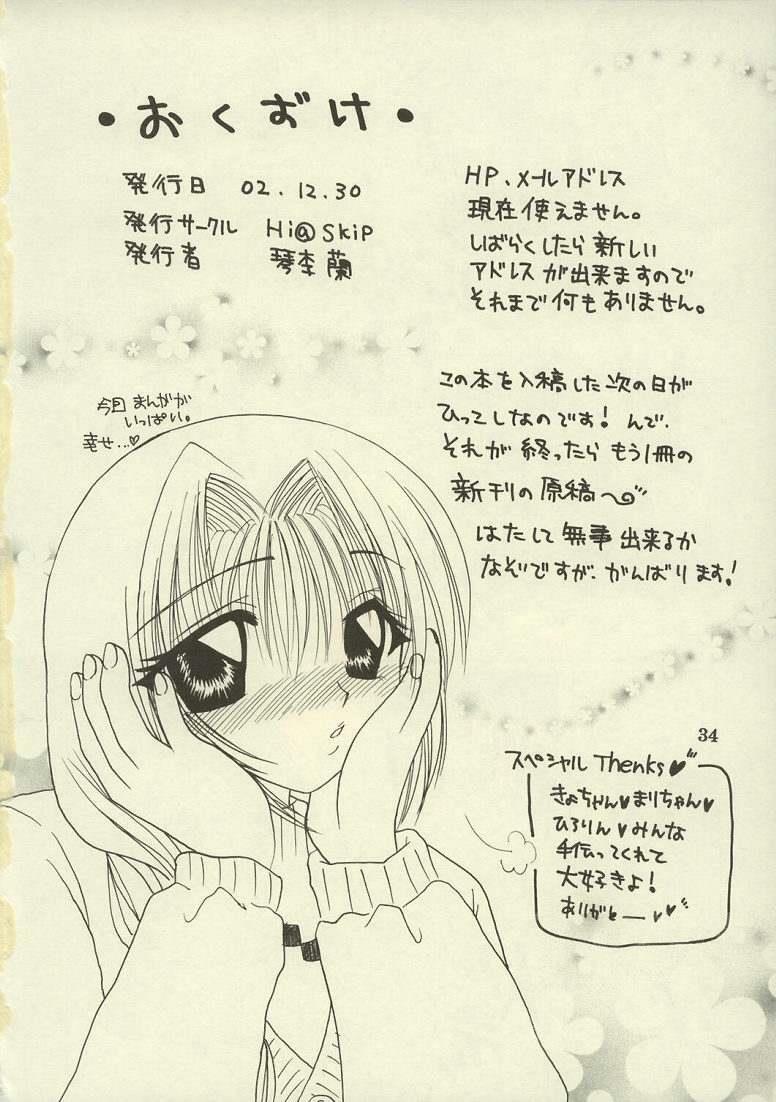 ・おくずけ・
発行日 02.12.30
発行サークル Hi@SkiP
発行者 琴李蘭
HP、メールアドレス
現在使えません。
しばらくしたら新しい
アドレスが出来ますので
それまで何もありません。
この本を入稿した次の日が
ひっこしなのです！んで、
それが終ったらもう1冊の
新刊の原稿〜
はたして無事出来るか
なぞですが、がんばります！
今回まんがが
いっぱい。
幸せ…♡
34
スペシャルThenks♥
きょちゃん♥まりちゃん♥
ひろりん♥みんな
手伝ってくれて
大好きよ！
ありがとー♥♥